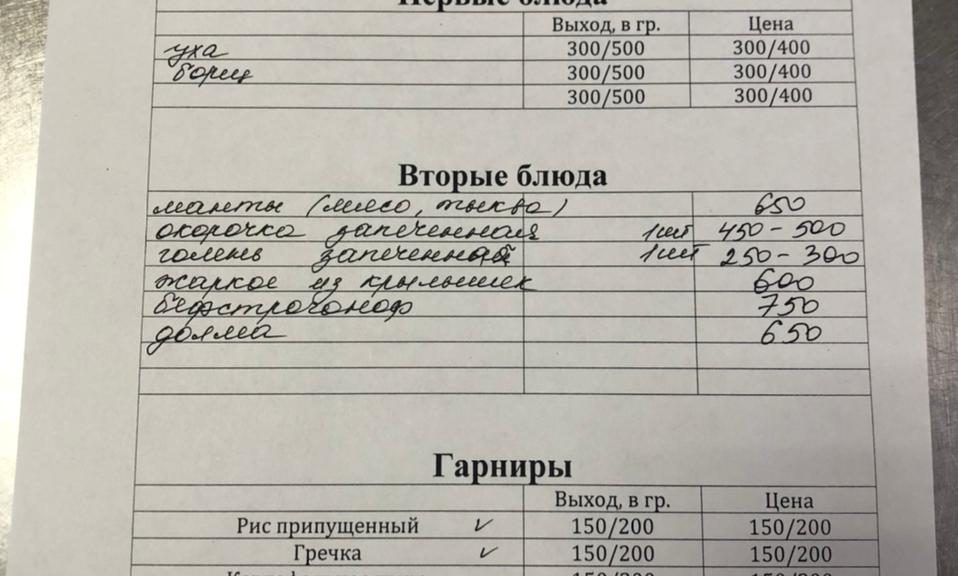 Первые блюда
Выход, в гр. Цена
уха 300/500 300/400
борщ 300/500 300/400
300/500 300/400
Вторые блюда
манты (мясо, тыква) 650
окорочка запеченная 1шт 450-500
голень запеченная 1шт 250-300
жаркое из крылышек 600
бефстроганоф 750
долма 650
Гарниры
Выход, в гр. Цена
Рис припущенный ✓ 150/200 150/200
Гречка ✓ 150/200 150/200